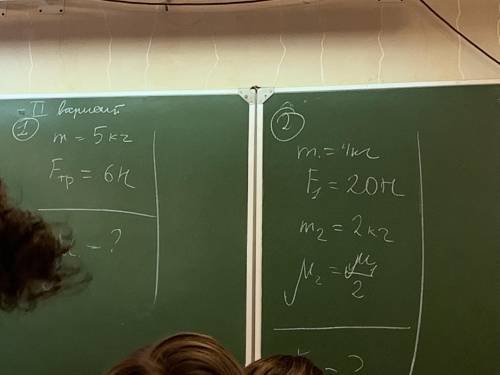 II вариант
1
m = 5кг
Fтр = 6Н
- ?
2
m₁ = 4кг
F₁ = 20Н
m₂ = 2кг
μ₂ = μ₁/2
- ?